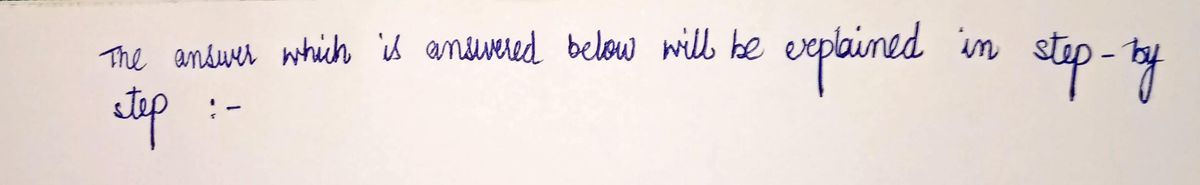 The answer which is answered below will be explained in step-by
step :-